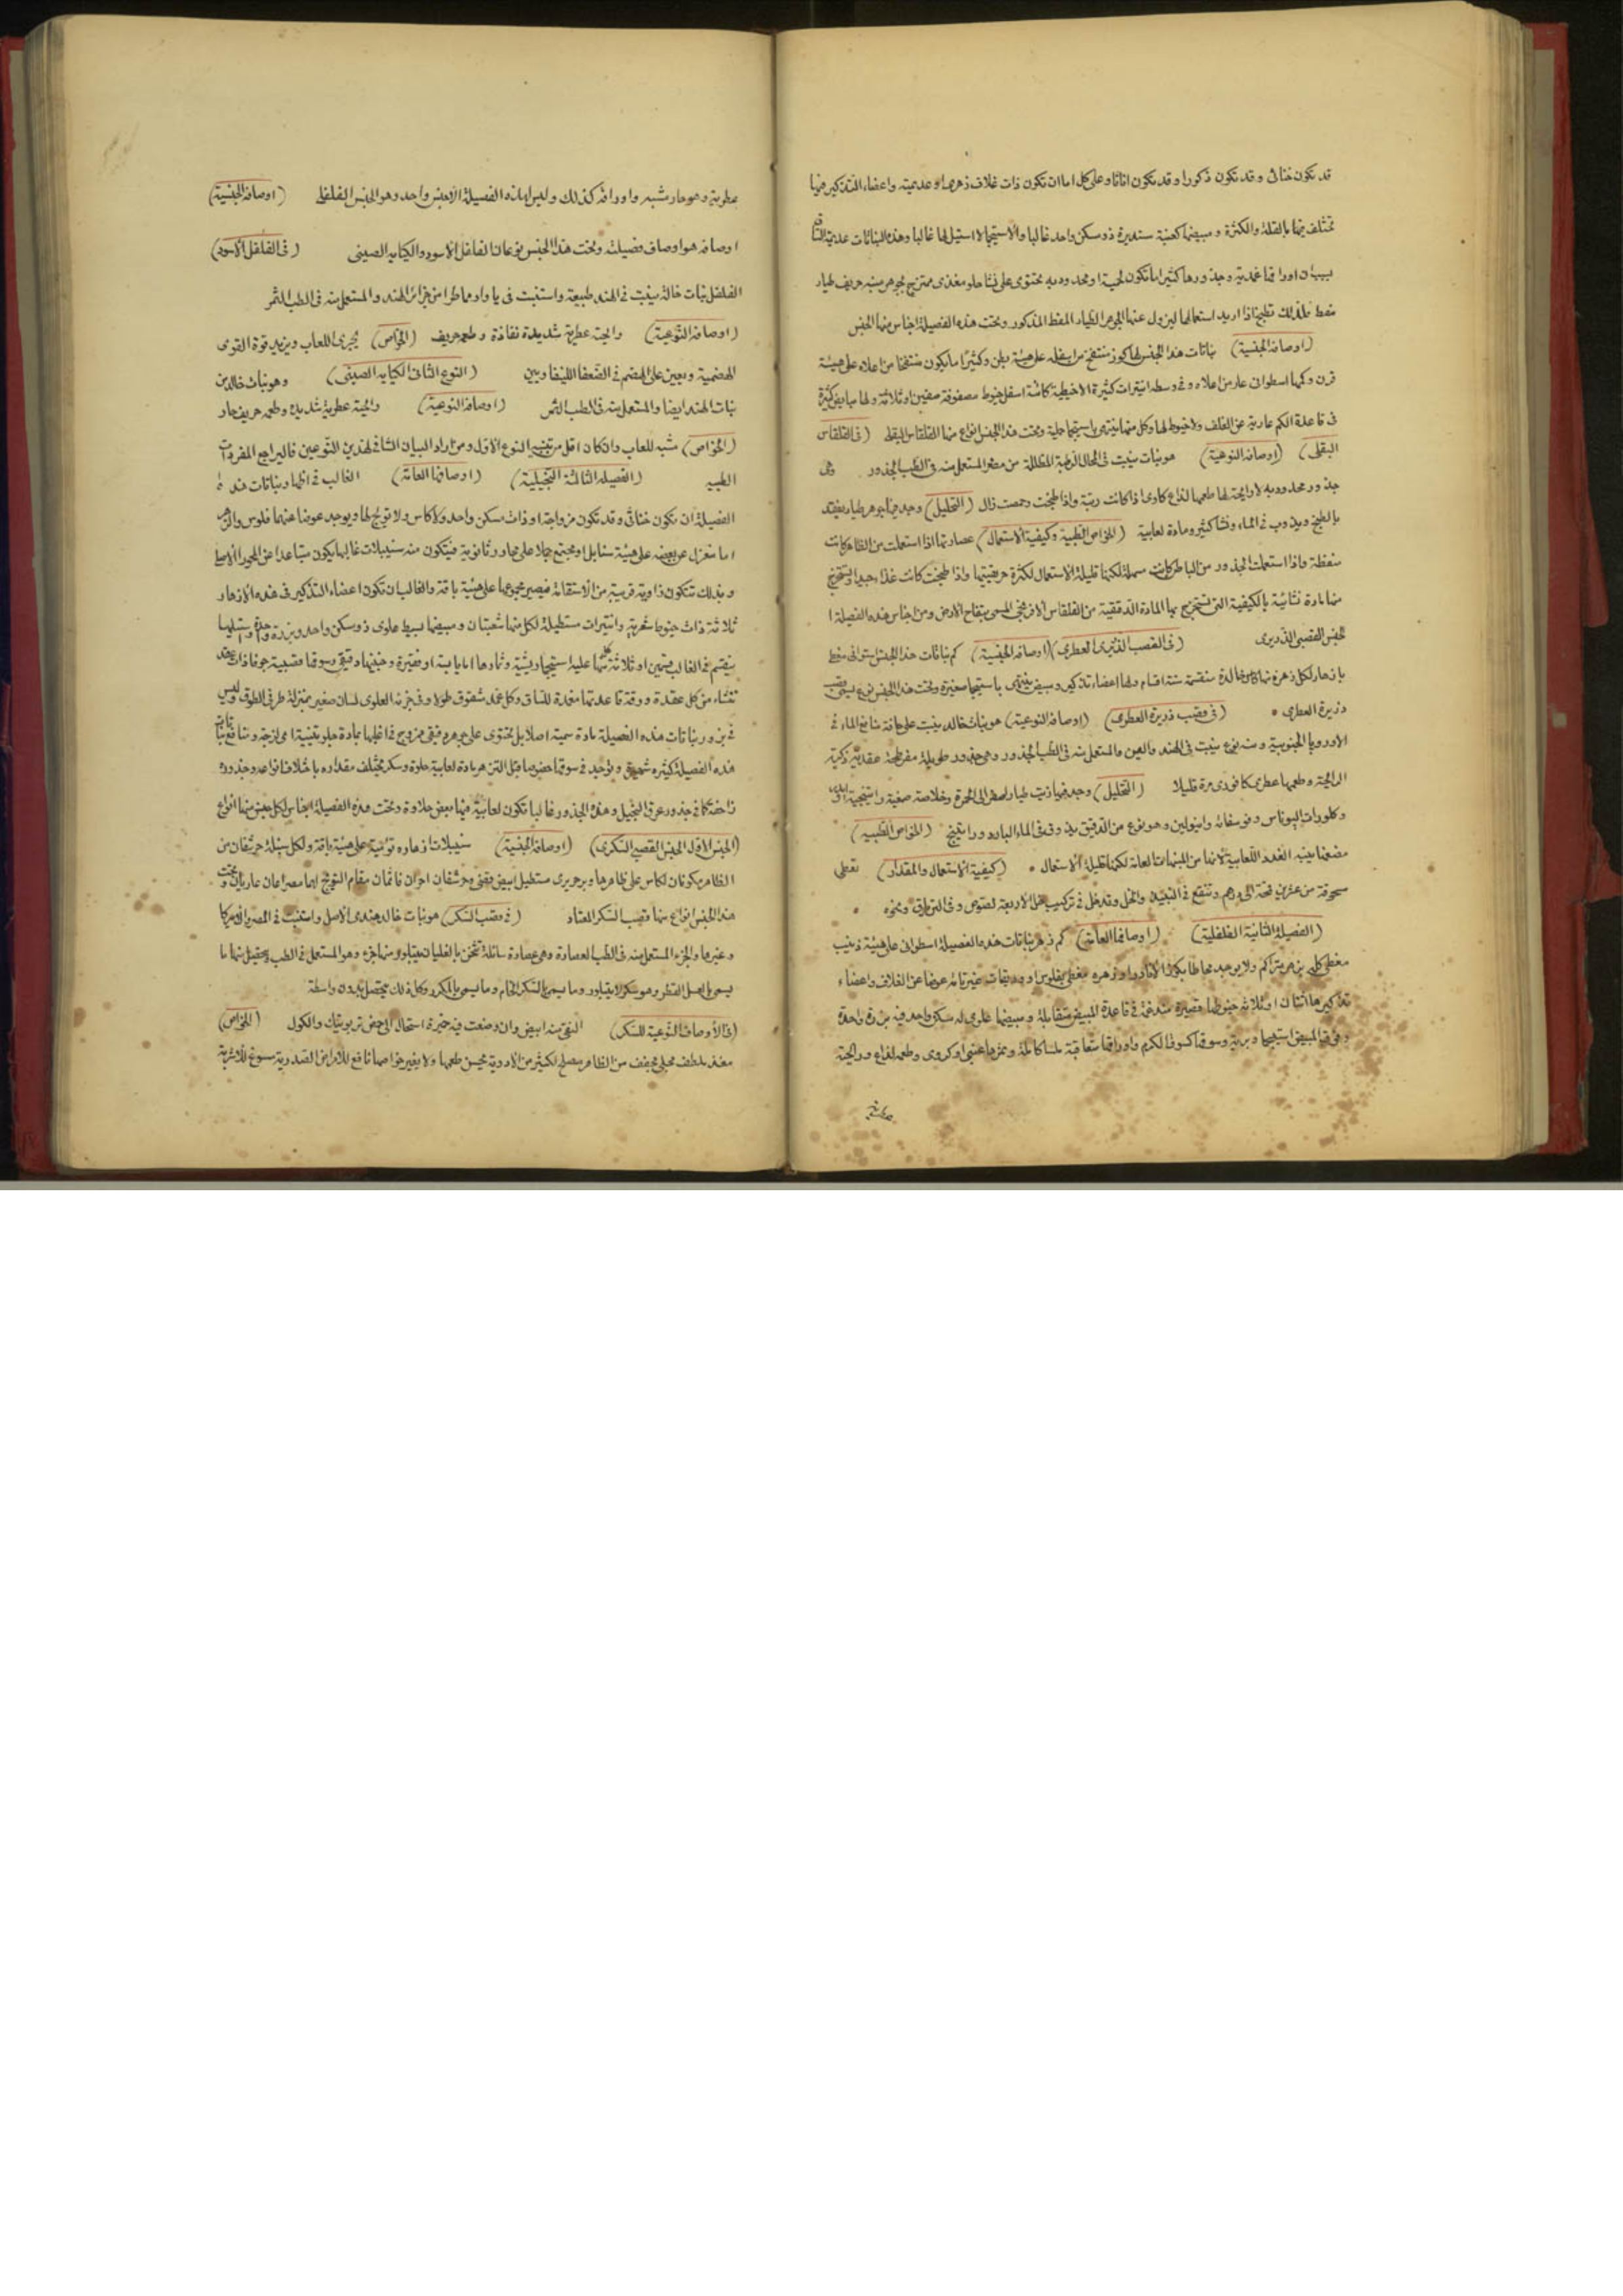 قد تكون خناثى وقد تكون ذكورا وقد تكون اناثا وعلى كل اما ان تكون ذات غلاف زهرى او عديمته واعضاء التذكير فيها
تختلف فيها بالقلة والكثرة ومبيضها كعنبة مستديرة ذو مسكن واحد غالبا والاستيجما لا استيل لها غالبا وهذه النباتات عديمة الساق
اوراقها غمدية وجذورها كثيرا ما تكون لحمية او محدودبه تحتوى على نشا حلو مغذى ممتزج بجوهر سمى حريف طيار
منفط فلذلك تطبخ اذا اريد استعمالها ليزول عنها الجوهر الطيار المنفط المذكور وتحت هذه الفصيلة اجناس منها الجنس
(اوصافه الجنسية) نباتات هذا الجنس لها كوز منتفخ من اسفله على هيئة بطن وكثيرا ما يكون منفتحا من اعلاه على هيئة
قرن وكمها اسطوانى عار من اعلاه وفى وسطه انتيرات كثيرة لا خيطية كائنة اسفل خيوط مصفوفة صفين او ثلاثة ولها مبايض كثيرة
فى قاعدة الكم عارية عن الغلف ولا خيوط لها وكل منها ينتهى باستيجما حلمية وتحت هذا الجنس انواع منها القلقاس البقلى (فى القلقاس
البقلى) (اوصافه النوعية) هو نبات ينبت فى المحال الرطبة المظللة من مصر والمستعمل منه فى الطب الجذور وهى
جذور محدودبه لا رايحة لها طعمها لذاع كاوى اذا كانت رطبة واذا طبخت وحمصت زال (التحليل) وجد فيها جوهر طيار يفقد
بالطبخ ويذوب فى الماء ونشا كثير ومادة لعابية (الخواص الطبية وكيفية الاستعمال) عصارتها اذا استعملت من الظاهر كانت
منفطة واذا استعملت الجذور من الباطن كانت مسهلة لكنها قليلة الاستعمال لكثرة حريفيتها واذا طبخت كانت غذاء جيدا وتستخرج
منها مادة نشائية بالكيفية التى تستخرج بها المادة الدقيقية من القلقاس الافرنجى المسمى بتفاح الارض ومن اجناس هذه الفصيلة ا
لجنس القصبى الذريرى (فى القصب الذريرى العطرى) (اوصافه الجنسية) كم نباتات هذا الجنس اسطوانى مغطى
بازهار لكل زهرة منها كاس خالدة منقسمة ستة اقسام ولها اعضاء تذكير ومبيض ينتهى باستيجما صغيرة وتحت هذا الجنس نوع يسمى قصب
ذريرة العطرى (فى قصب ذريرة العطرى) (اوصافه النوعية) هو نبات خالد ينبت على حافة منابع الماء فى
الاوروپا الجنوبية ومنه نوع ينبت فى الهند والصين والمستعمل منه فى الطب الجذور وهى جذور طويلة مفرطحة عقدية زكية
الرايحة وطعمها عطرى كافورى مر قليلا (التحليل) وجد فيها زيت طيار اصفر الى الحمرة وخلاصة صمغية وراتينجية
وكلورات البوتاس وفوسفاته وانيولين وهو نوع من الدقيق يذوب فى الماء البارد وراتينج (الخواص الطبيه)
مضغها ينبه الغدد اللعابية لانها من المنبهات العامة لكنها قليلة الاستعمال (كيفية الاستعمال والمقدار) تعطى
مسحوقة من عشرين قمحة الى درهم وتنقع فى النبيذ والخل وقد تدخل فى تركيب خل الاربعة لصوص وفى الترياق ونحوه
(الفصيلة الثانية الفلفلية) (اوصافها العامة) كم زهر نباتات هذه الفصيلة اسطوانى على هيئة ذنيب
مغطى كله بزهر متراكم ولا يوجد محاطا بكوز الا نادرا وزهره مغطى بفلوس او وريقات غير تامة عوضا عن الغلاف واعضاء
تذكيرها اثنتان او ثلاثة خيوطها قصيرة مندغمة فى قاعدة المبيض متقابلة ومبيضها علوى له مسكن واحد فيه بزرة واحدة
وفوق المبيض استيجما وبرية وسوقها كسوق الكرم واوراقها متعاقبة ملسا كاملة وثمرها عنبى او كروى وطعمه لذاع ورايحته
عطرية
عطرية وهو حار منبه واوراقه كذلك وليس لهذه الفصيلة الا جنس واحد وهو الجنس الفلفلى (اوصافه الجنسية)
اوصافه هو اوصاف فصيلته وتحت هذا الجنس نوعان الفلفل الاسود والكبابه الصينى (فى الفلفل الاسود)
الفلفل نبات خالد ينبت فى الهند طبيعة واستنبت فى ياوا وماطرا من جزائر الهند والمستعمل منه فى الطب الثمر
(اوصافه النوعية) رايحته عطرية شديدة نفاذة وطعمه حريف (الخواص) يجرى اللعاب ويزيد قوة القوى
الهضمية ويعين على الهضم فى الضعفا الليفاويين (النوع الثانى الكبابه الصينى) وهو نبات خالد من
نبات الهند ايضا والمستعمل منه فى الطب الثمر (اوصافه النوعية) رايحته عطرية شديدة وطعمه حريف حار
(الخواص) منبه للعاب وان كان اقل من تنبيه النوع الاول ومن اراد البيان الشافى لهذين النوعين فاليراجع المفردات
الطبيه (الفصيله الثالثة النجيلية) (اوصافها العامة) الغالب فى ازهار نباتات هذه
الفصيلة ان تكون خناثى وقد تكون مزواجة او ذات مسكن واحد ولا كاس ولا تويج لها ويوجد عوضا عنهما فلوس والزهر
اما منعزل عن بعضه على هيئة سنابل او مجتمع جملا على محاور ثانوية فيتكون منه سنيبلات غالبها يكون متباعدا عن المحور الاصلى
وبذلك تتكون زاوية قريبة من الاستقامة فيصير مجموعها على هيئة باقة والغالب ان تكون اعضاء التذكير فى هذه الازهار
ثلاثة ذات خيوط شعرية وانتيرات مستطيلة لكل منها شعبتان ومبيضها بسيط علوى ذو مسكن واحد وبزرة واحدة واستيلها
ينقسم فى الغالب قسمين او ثلاثة كل منها عليه استيجما ريشية وثمارها اما يابسة او فقيرة وجنينها دقيقى وسوقها قصبية جوفا ذات عقد
تنشاء من كل عقدة ورقة قاعدتها مغمدة للساق وكل غمد مشقوق طولا وفى جزئه العلوى لسان صغير بمنزلة طرف الطوق وليس
فى بزور نباتات هذه الفصيلة مادة سمية اصلا بل تحتوى على جوهر دقيقى ممزوج فى اغلبها بمادة حلوتينية اى لزجة ومنافع نباتات
هذه الفصيلة كثيره شهيرة ويوجد فى سوقها خصوصا قبل التزهر مادة لعابية حلوة وسكر مختلف مقداره باختلاف انواعه وجذوره
زاحفة كما فى جذور عرق النجيل وهذه الجذور غالبا تكون لعابية فيها بعض حلاوة وتحت هذه الفصيلة اجناس لكل جنس منها انواع
(الجنس الاول الجنس القصبى السكرى) (اوصافه الجنسية) سنيبلات ازهاره تؤمية على هيئة باقة ولكل سنبلة حرشفان من
الظاهر يكونان لكاس على ظاهرها وبر حريرى مستطيل ابيض فضى وحرشفان اخران قائمان مقام التويج لهما مصراعان عاريان وتحت
هذا الجنس انواع منها قصب السكر المعتاد (فى قصب السكر) هو نبات خالد هندى الاصل واستنبت فى المصر والامريكا
وغيرها والجزء المستعمل منه فى الطب العصارة وهى عصارة سائلة تثخن بالغليان ويتبلور منها جزء وهو المستعمل فى الطب يتحصل منها ما
يسمى بالعسل القطر وهو سكر لا يتبلور وما يسمى بالسكر الخام وما يسمى بالمكرر وكل ذلك يتحصل بادنى واسطة
(فى الاوصاف النوعية للسكر) النقى منه ابيض وان وضعت فيه خميرة استحال الى حمض كربونيك والكول (الخواص)
مغذ ملطف محلى مجفف من الظاهر مصلح لكثير من الادوية يحسن طعمها ولا يغير خواصها نافع للامراض الصدرية مسوغ للاشربة